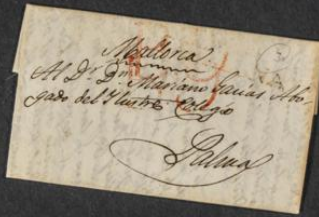 Mallorca
Al Dr. Dn. Mariano Gacias Abo-
gado del Ilustre Colegio
Palma